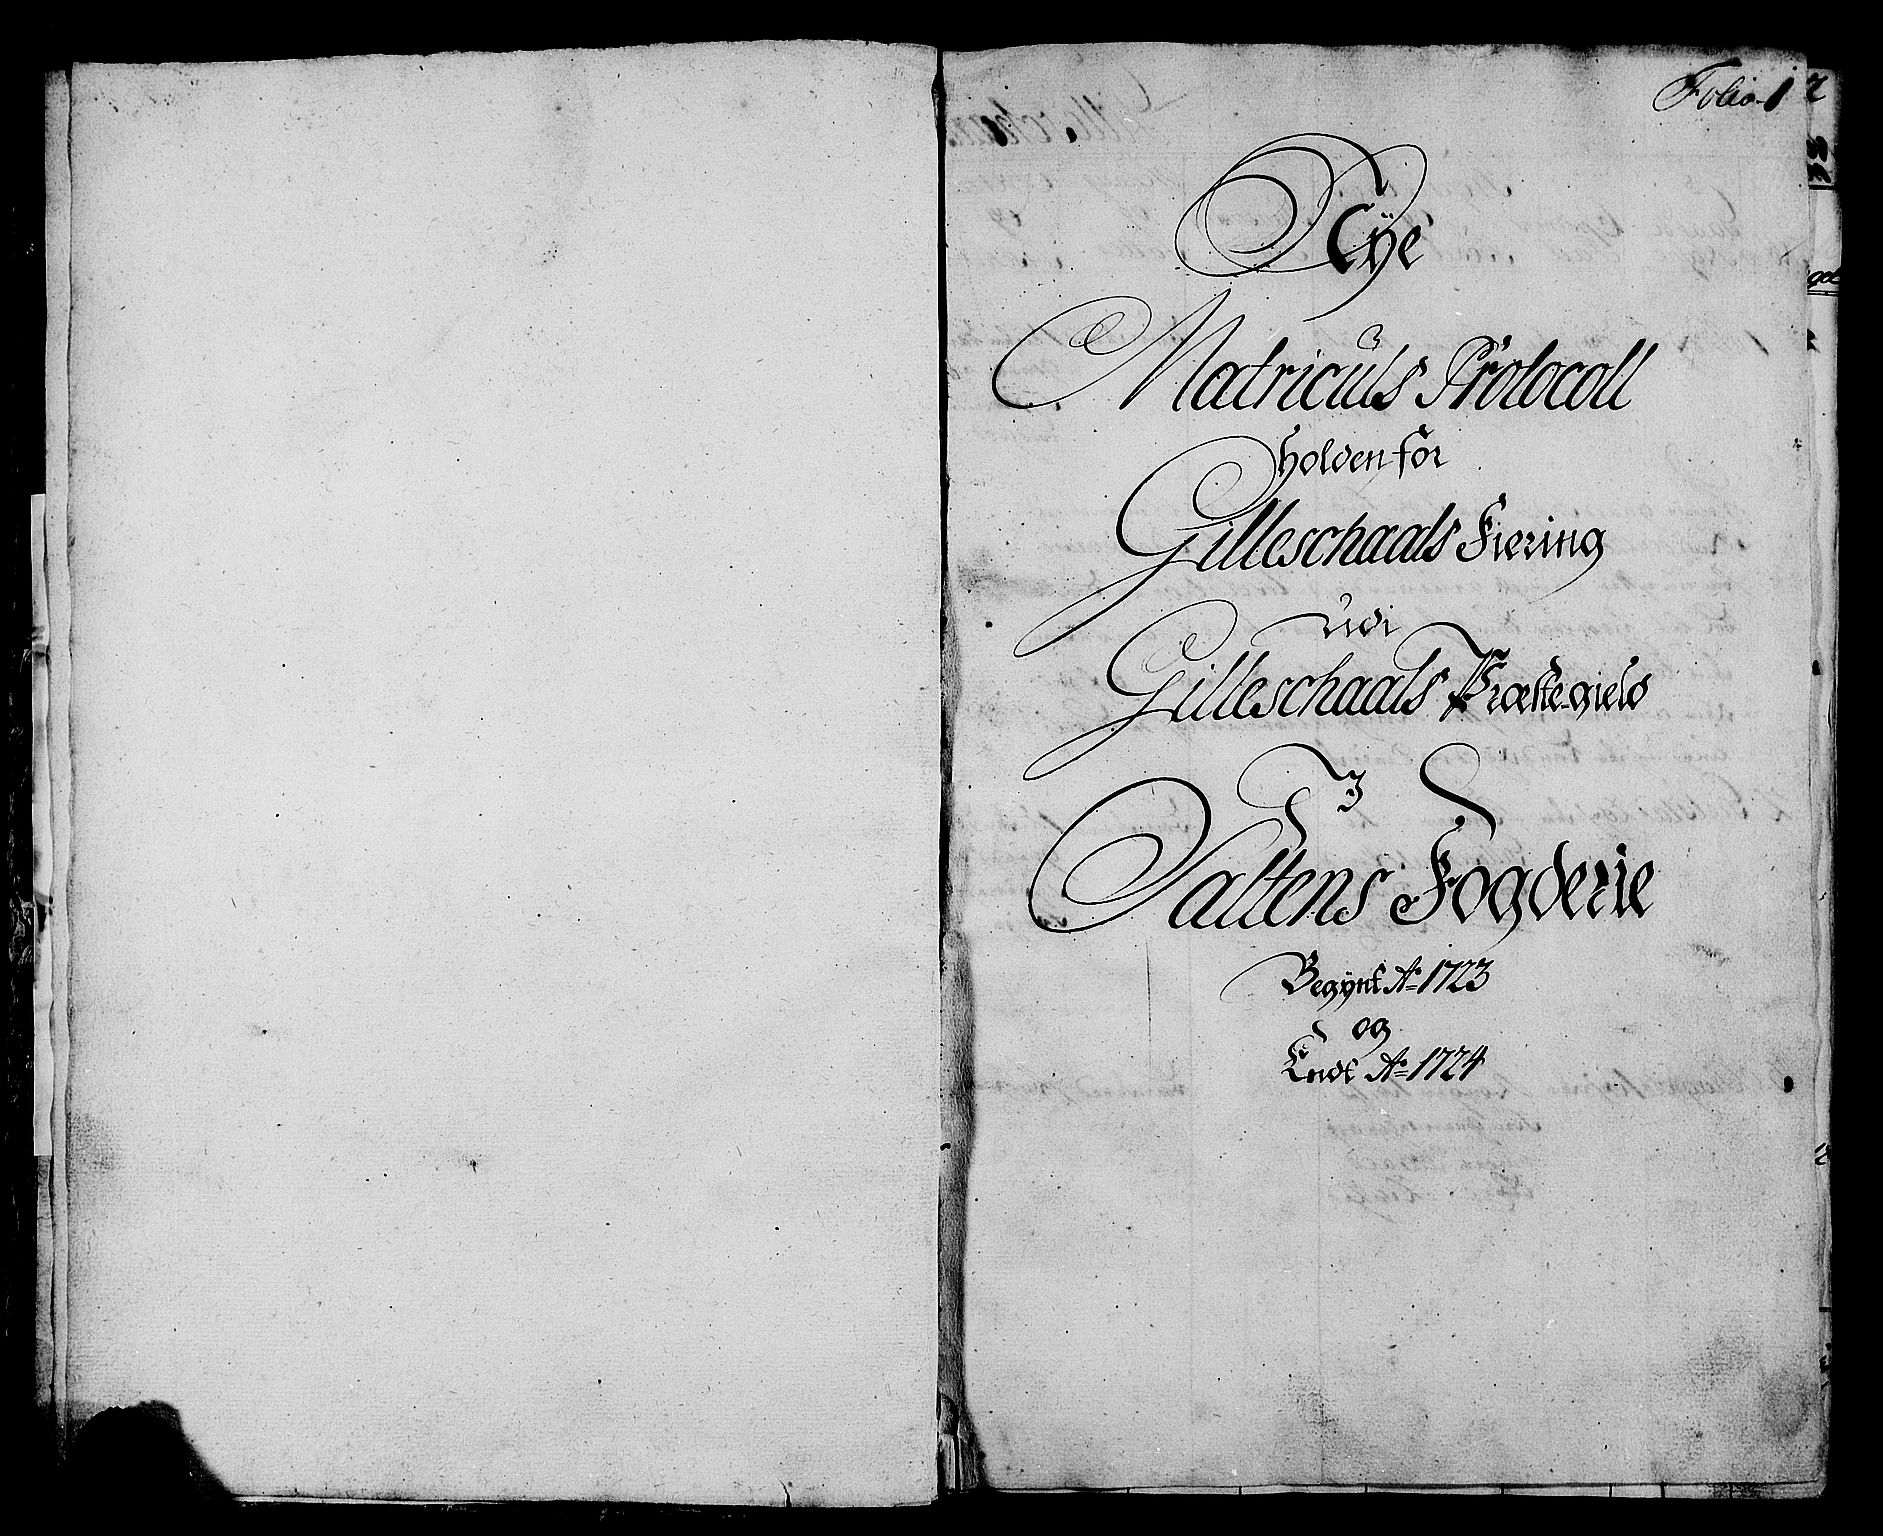 Folio 1
Nÿe
Matriculs Protocoll
holden for
Gilleschaals Fiering
udi
Gilleschaals Præstegield
I
Saltens Fogderie
Begÿnt Ao 1723
og
Endt Ao 1724